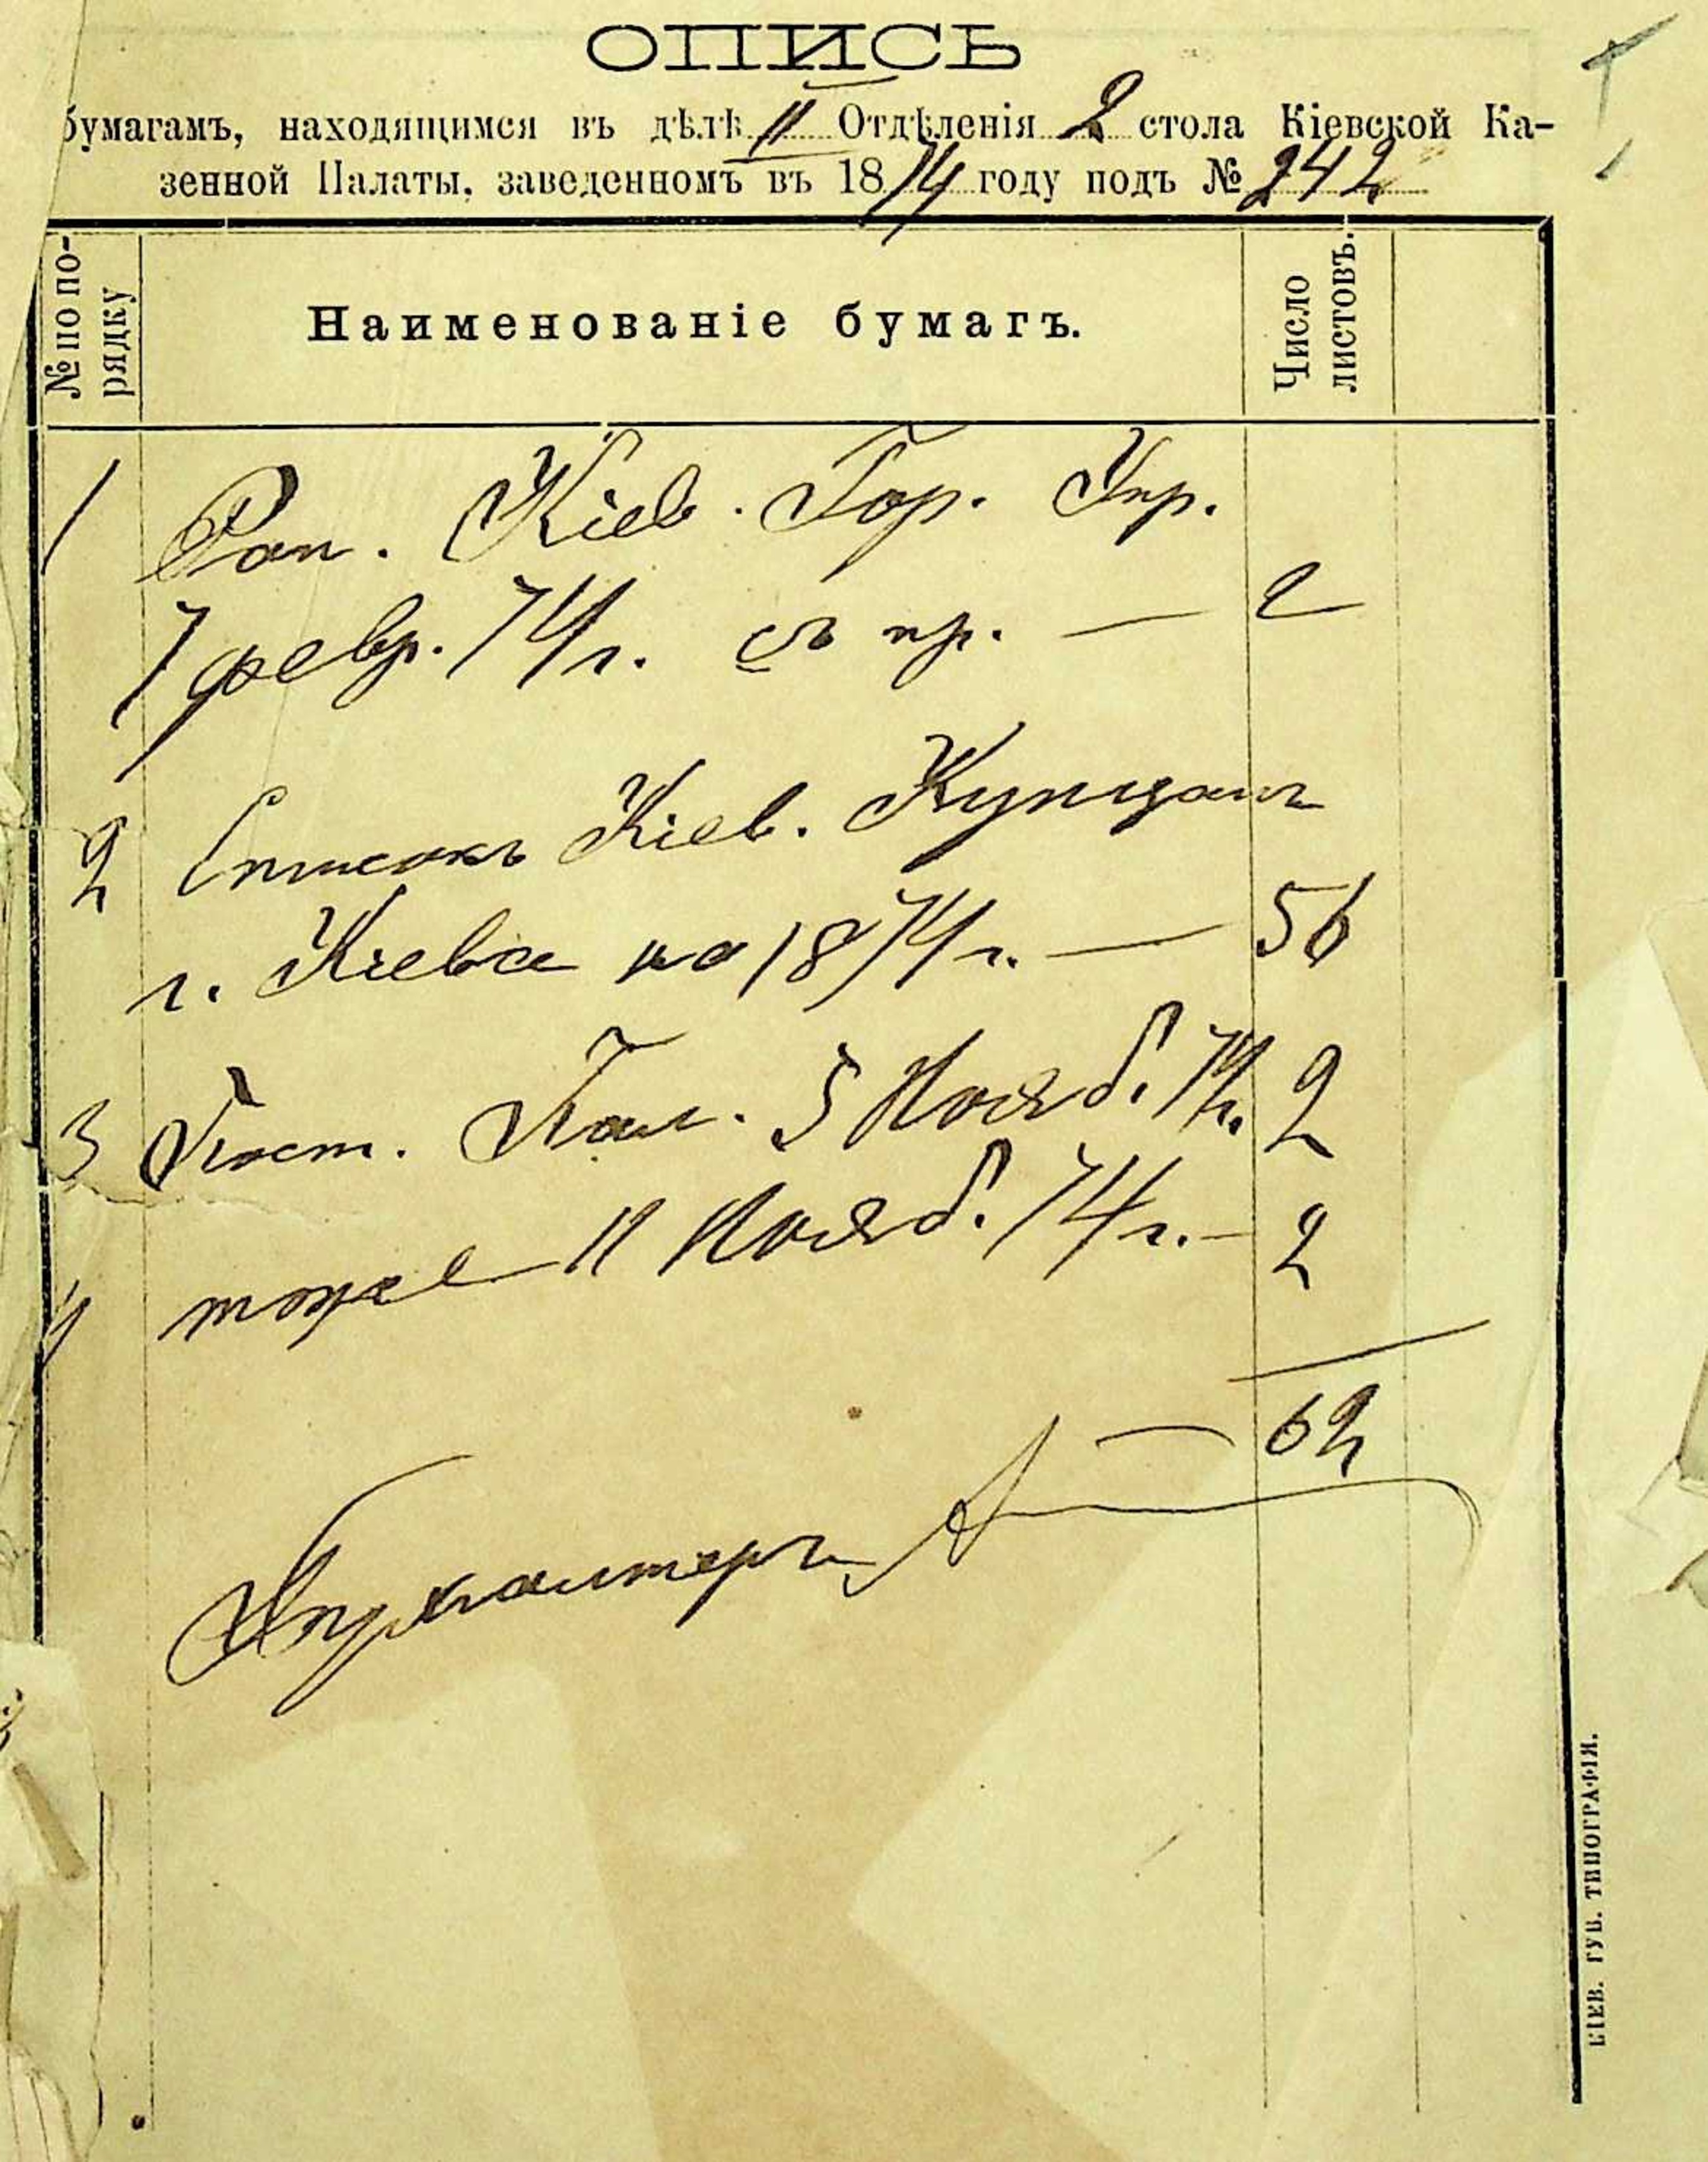 ОПИСЬ
бумагамъ, находящимся въ дѣлѣ II Отдѣленія 2 стола Кіевской Ка-
зенной Палаты, заведенномъ въ 1874 году подъ № 242
№ по по-
рядку
Наименованіе бумагъ.
Число
листовъ.
1 Рап. Кіев. Гор. Упр.
7 февр. 74 г. съ пр. — 2
2 Списокъ Кіев. Купцамъ
г. Кіева на 1874 г. — 56
3 Пост. Пал. 5 Нояб. 74 г. 2
4 тоже — 11 Нояб. 74 г. — 2
— 62
Бухгалтеръ
КІЕВ. ГУБ. ТИПОГРАФІЯ.